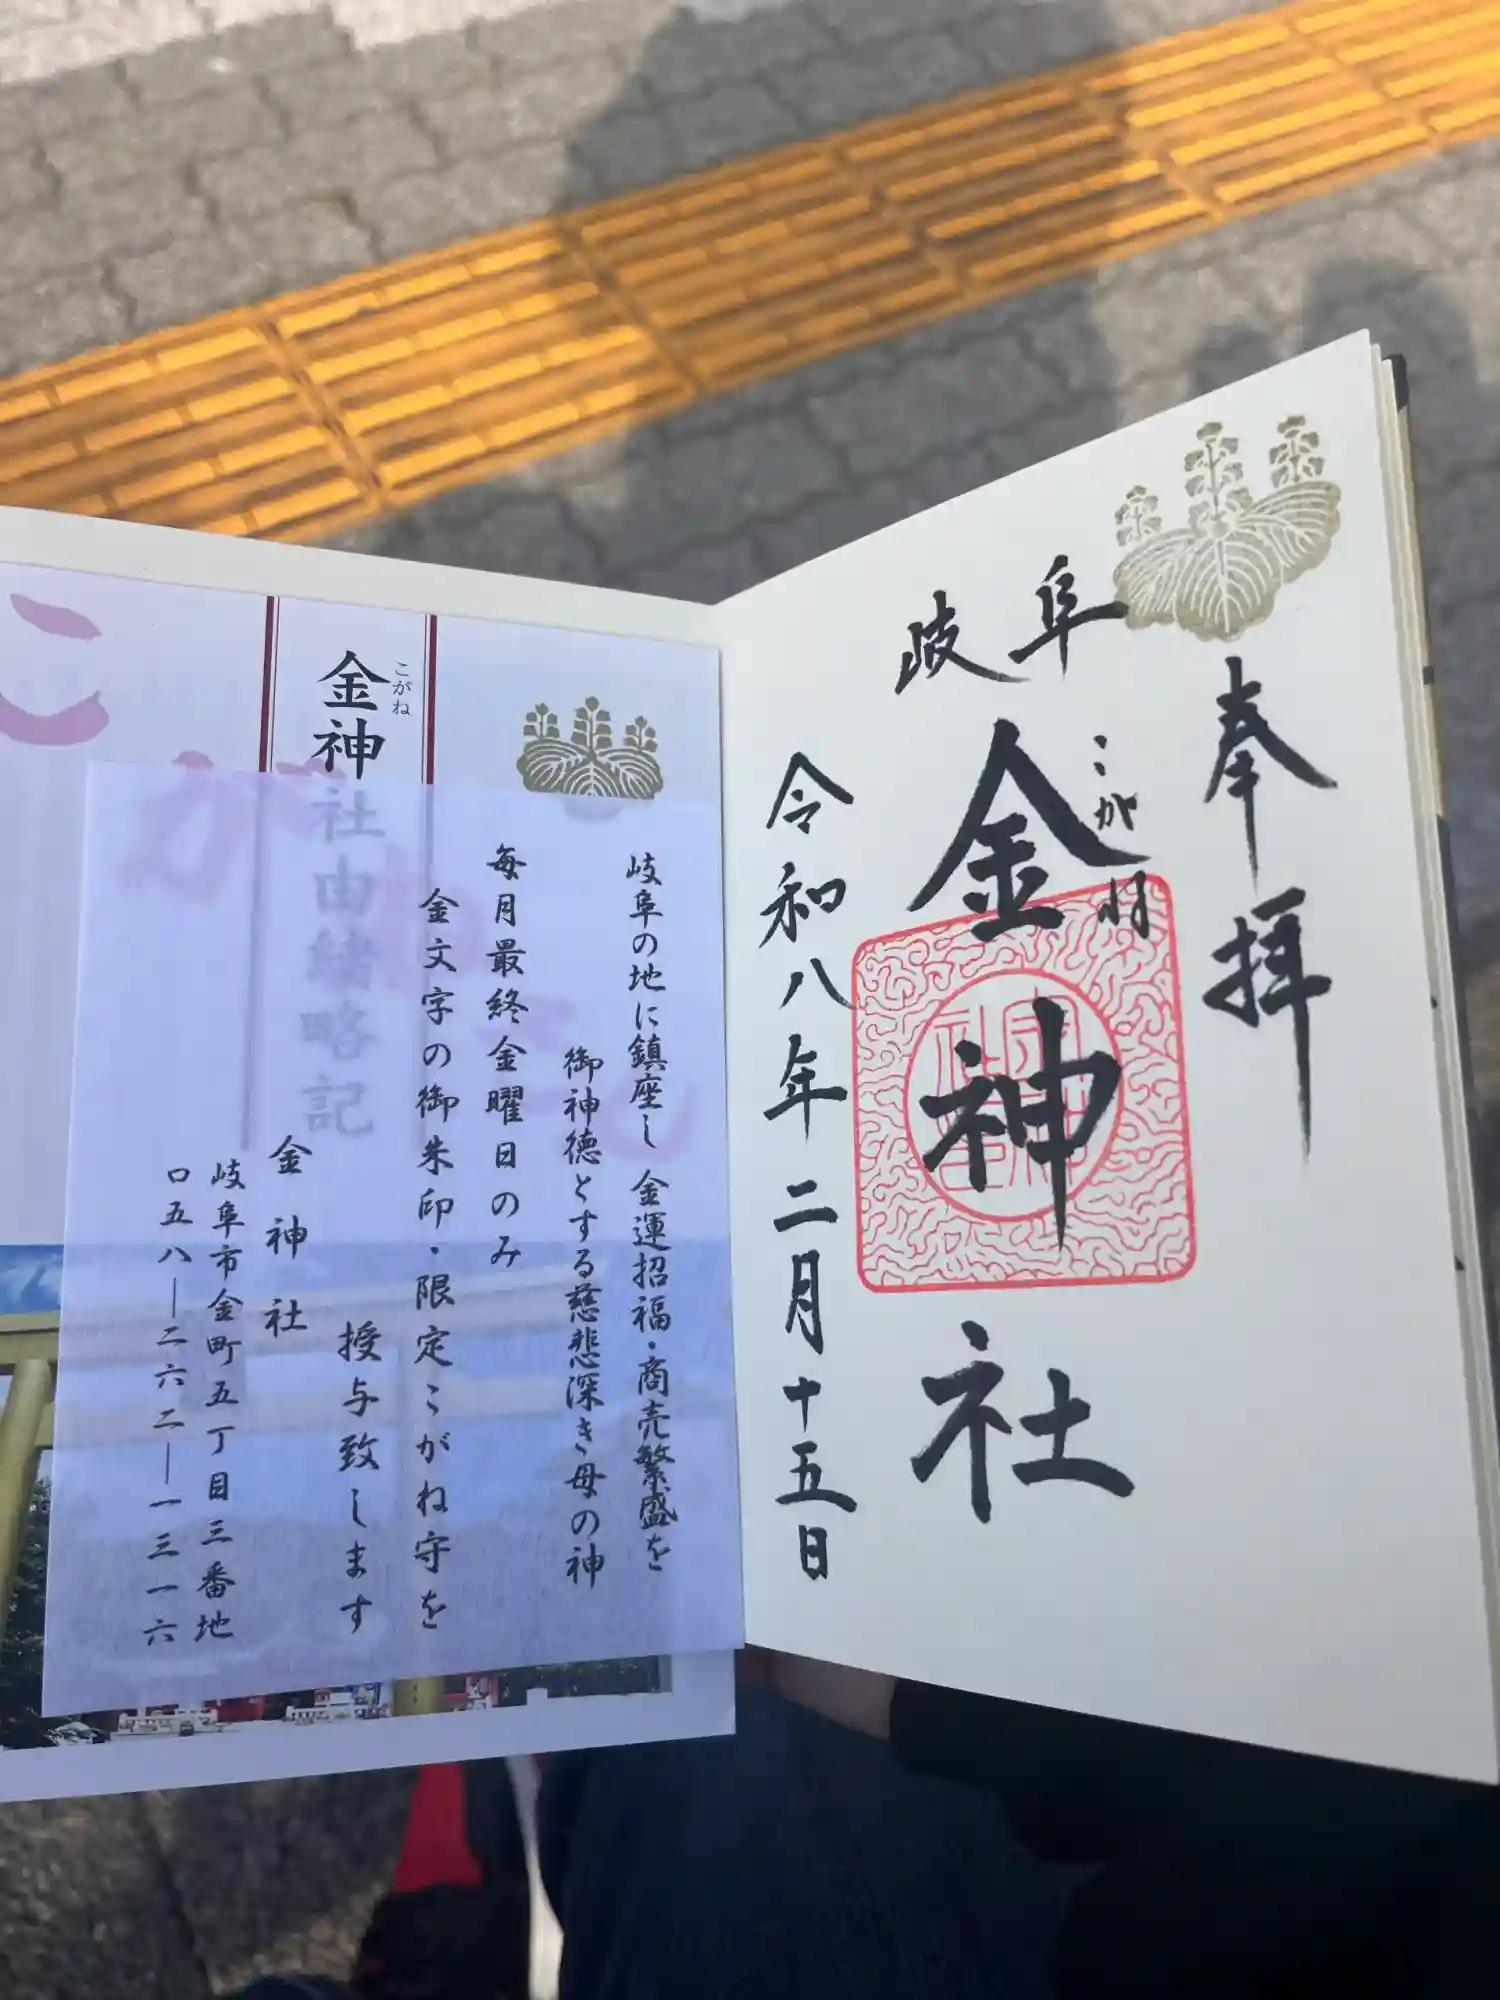 奉拝
岐阜
こがね
金神社
令和八年二月十五日
岐阜の地に鎮座し 金運招福・商売繁盛を
御神徳とする慈悲深き母の神
毎月最終金曜日のみ
金文字の御朱印・限定こがね守を
授与致します
金神社
岐阜市金町五丁目三番地
〇五八―二六二―一三一六
こがね
金神社由緒略記
こがね